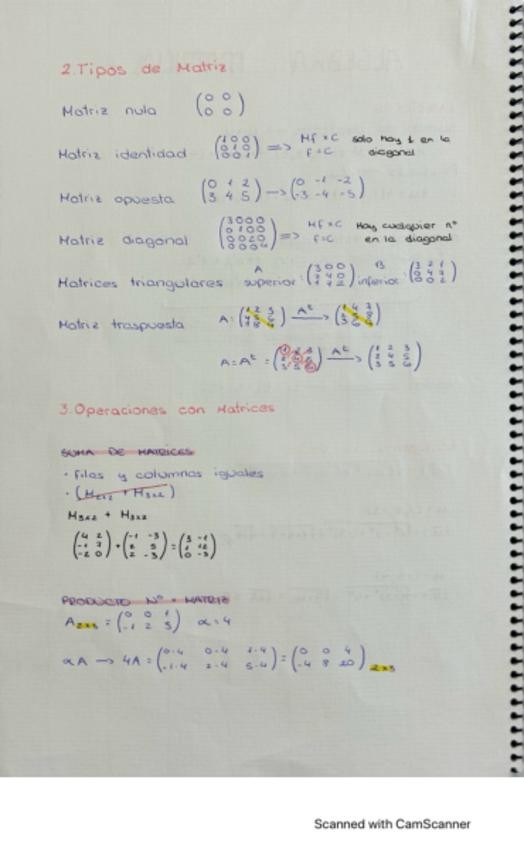 2. Tipos de Matriz
Matriz nula (0 0 / 0 0)
Matriz identidad (1 0 0 / 0 1 0 / 0 0 1) => Mf×C f=C solo hay 1 en la diagonal
Matriz opuesta (0 1 2 / 3 4 5) → (0 -1 -2 / -3 -4 -5)
Matriz diagonal (3 0 0 0 / 0 1 0 0 / 0 0 2 0 / 0 0 0 4) => Mf×C f=C Hay cualquier nº en la diagonal
Matrices triangulares A superior: B inferior:
Matriz traspuesta A: (1 2 3 / 4 5 6 / 7 8 9) Aᵗ→ (1 4 7 / 2 5 8 / 3 6 9)
A=Aᵗ = (1 2 3 / 2 4 5 / 3 5 6) Aᵗ→ (1 2 3 / 2 4 5 / 3 5 6)
3. Operaciones con Matrices
SUMA DE MATRICES
· filas y columnas iguales
· (M2x2 + M3x2)
M3x2 + M3x2
(4 2 / -1 7 / -2 0) + (-1 -3 / 2 5 / 2 -3) = (3 -1 / 1 12 / 0 -3)
PRODUCTO Nº · MATRIZ
A2x3 = (0 0 1 / -1 2 5) α=4
αA → 4A = (0·4 0·4 1·4 / -1·4 2·4 5·4) = (0 0 4 / -4 8 20) 2x3
Scanned with CamScanner